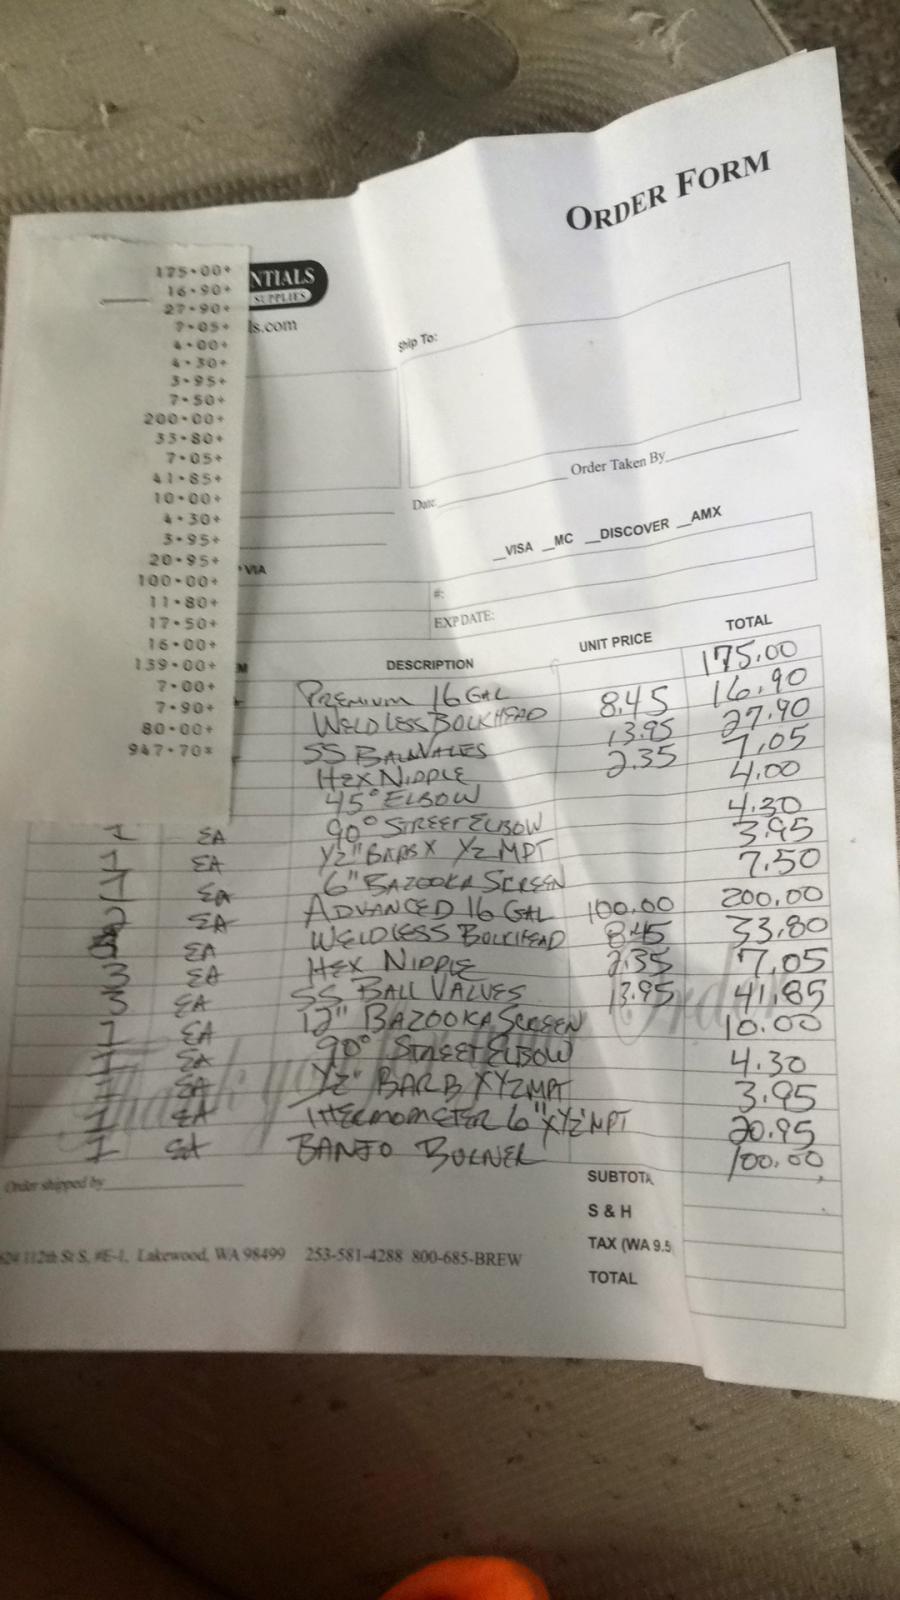 ORDER FORM
NTIALS
SUPPLIES
ls.com
Ship To:
175.00+
16.90+
27.90+
7.05+
4.00+
4.30+
3.95+
7.50+
200.00+
33.80+
7.05+
41.85+
10.00+
4.30+
3.95+
20.95+
100.00+
11.80+
17.50+
16.00+
139.00+
7.00+
7.90+
80.00+
947.70*
Date
Order Taken By
VIA
_VISA _MC _DISCOVER _AMX
#:
EXP DATE:
M DESCRIPTION UNIT PRICE TOTAL
PREMIUM 16 GAL 175.00
WELDLESS BOLKHEAD 8.45 16.90
SS BALL VALVES 13.95 27.90
HEX NIPPLE 2.35 7.05
45° ELBOW 4.00
1 EA 90° STREET ELBOW 4.30
1 EA 1/2" BARB X 1/2 MPT 3.95
1 EA 6" BAZOOKA SCREEN 7.50
2 EA ADVANCED 16 GAL 100.00 200.00
EA WELDLESS BOLKHEAD 8.45 33.80
3 EA HEX NIPPLE 2.35 7.05
3 EA SS BALL VALVES 13.95 41.85
1 EA 12" BAZOOKA SCREEN 10.00
1 EA 90° STREET ELBOW 4.30
1 EA 1/2" BARB X 1/2 MPT 3.95
1 EA THERMOMETER 6" X 1/2" MPT 20.95
1 EA BANJO BURNER 100.00
Thank you Order
Order shipped by
SUBTOTA
S & H
TAX (WA 9.5
TOTAL
112th St S, #E-1, Lakewood, WA 98499 253-581-4288 800-685-BREW